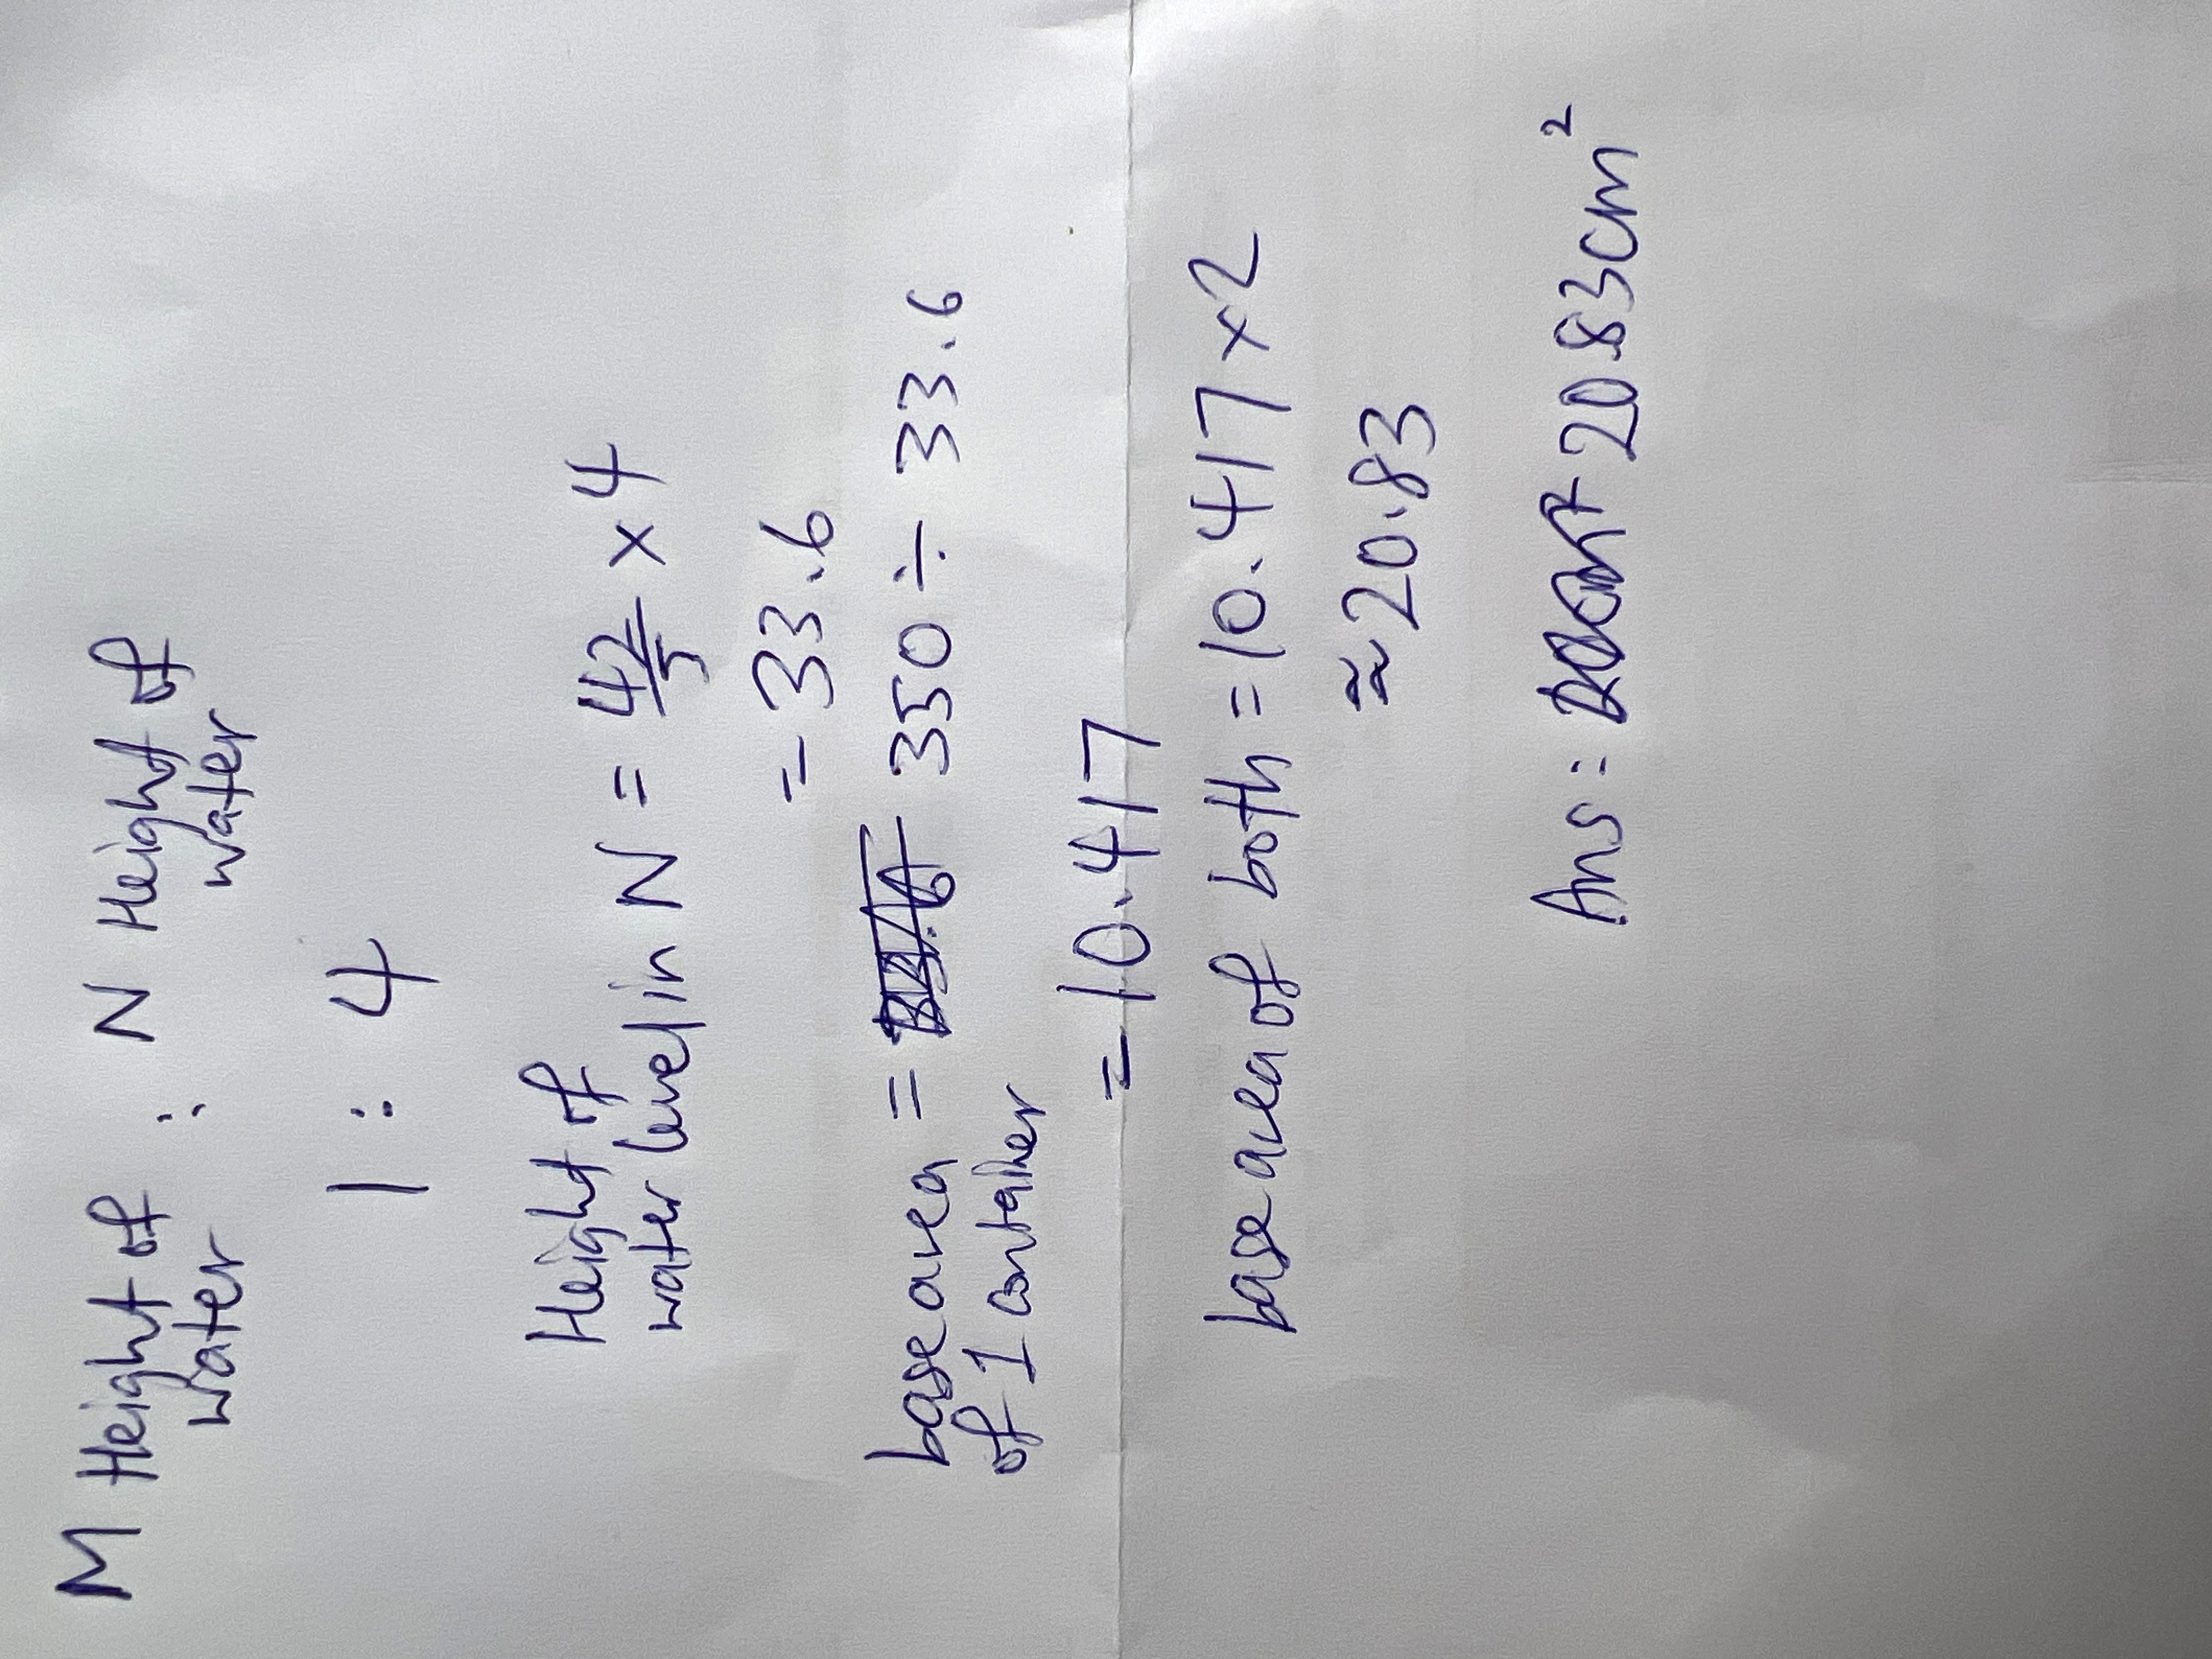 M Height of water : N Height of water
1 : 4
Height of water level in N = 42/5 × 4
= 33.6
base area of 1 container = 350 ÷ 33.6
= 10.417
base area of both = 10.417 × 2
≈ 20.83
Ans: 20.83cm²